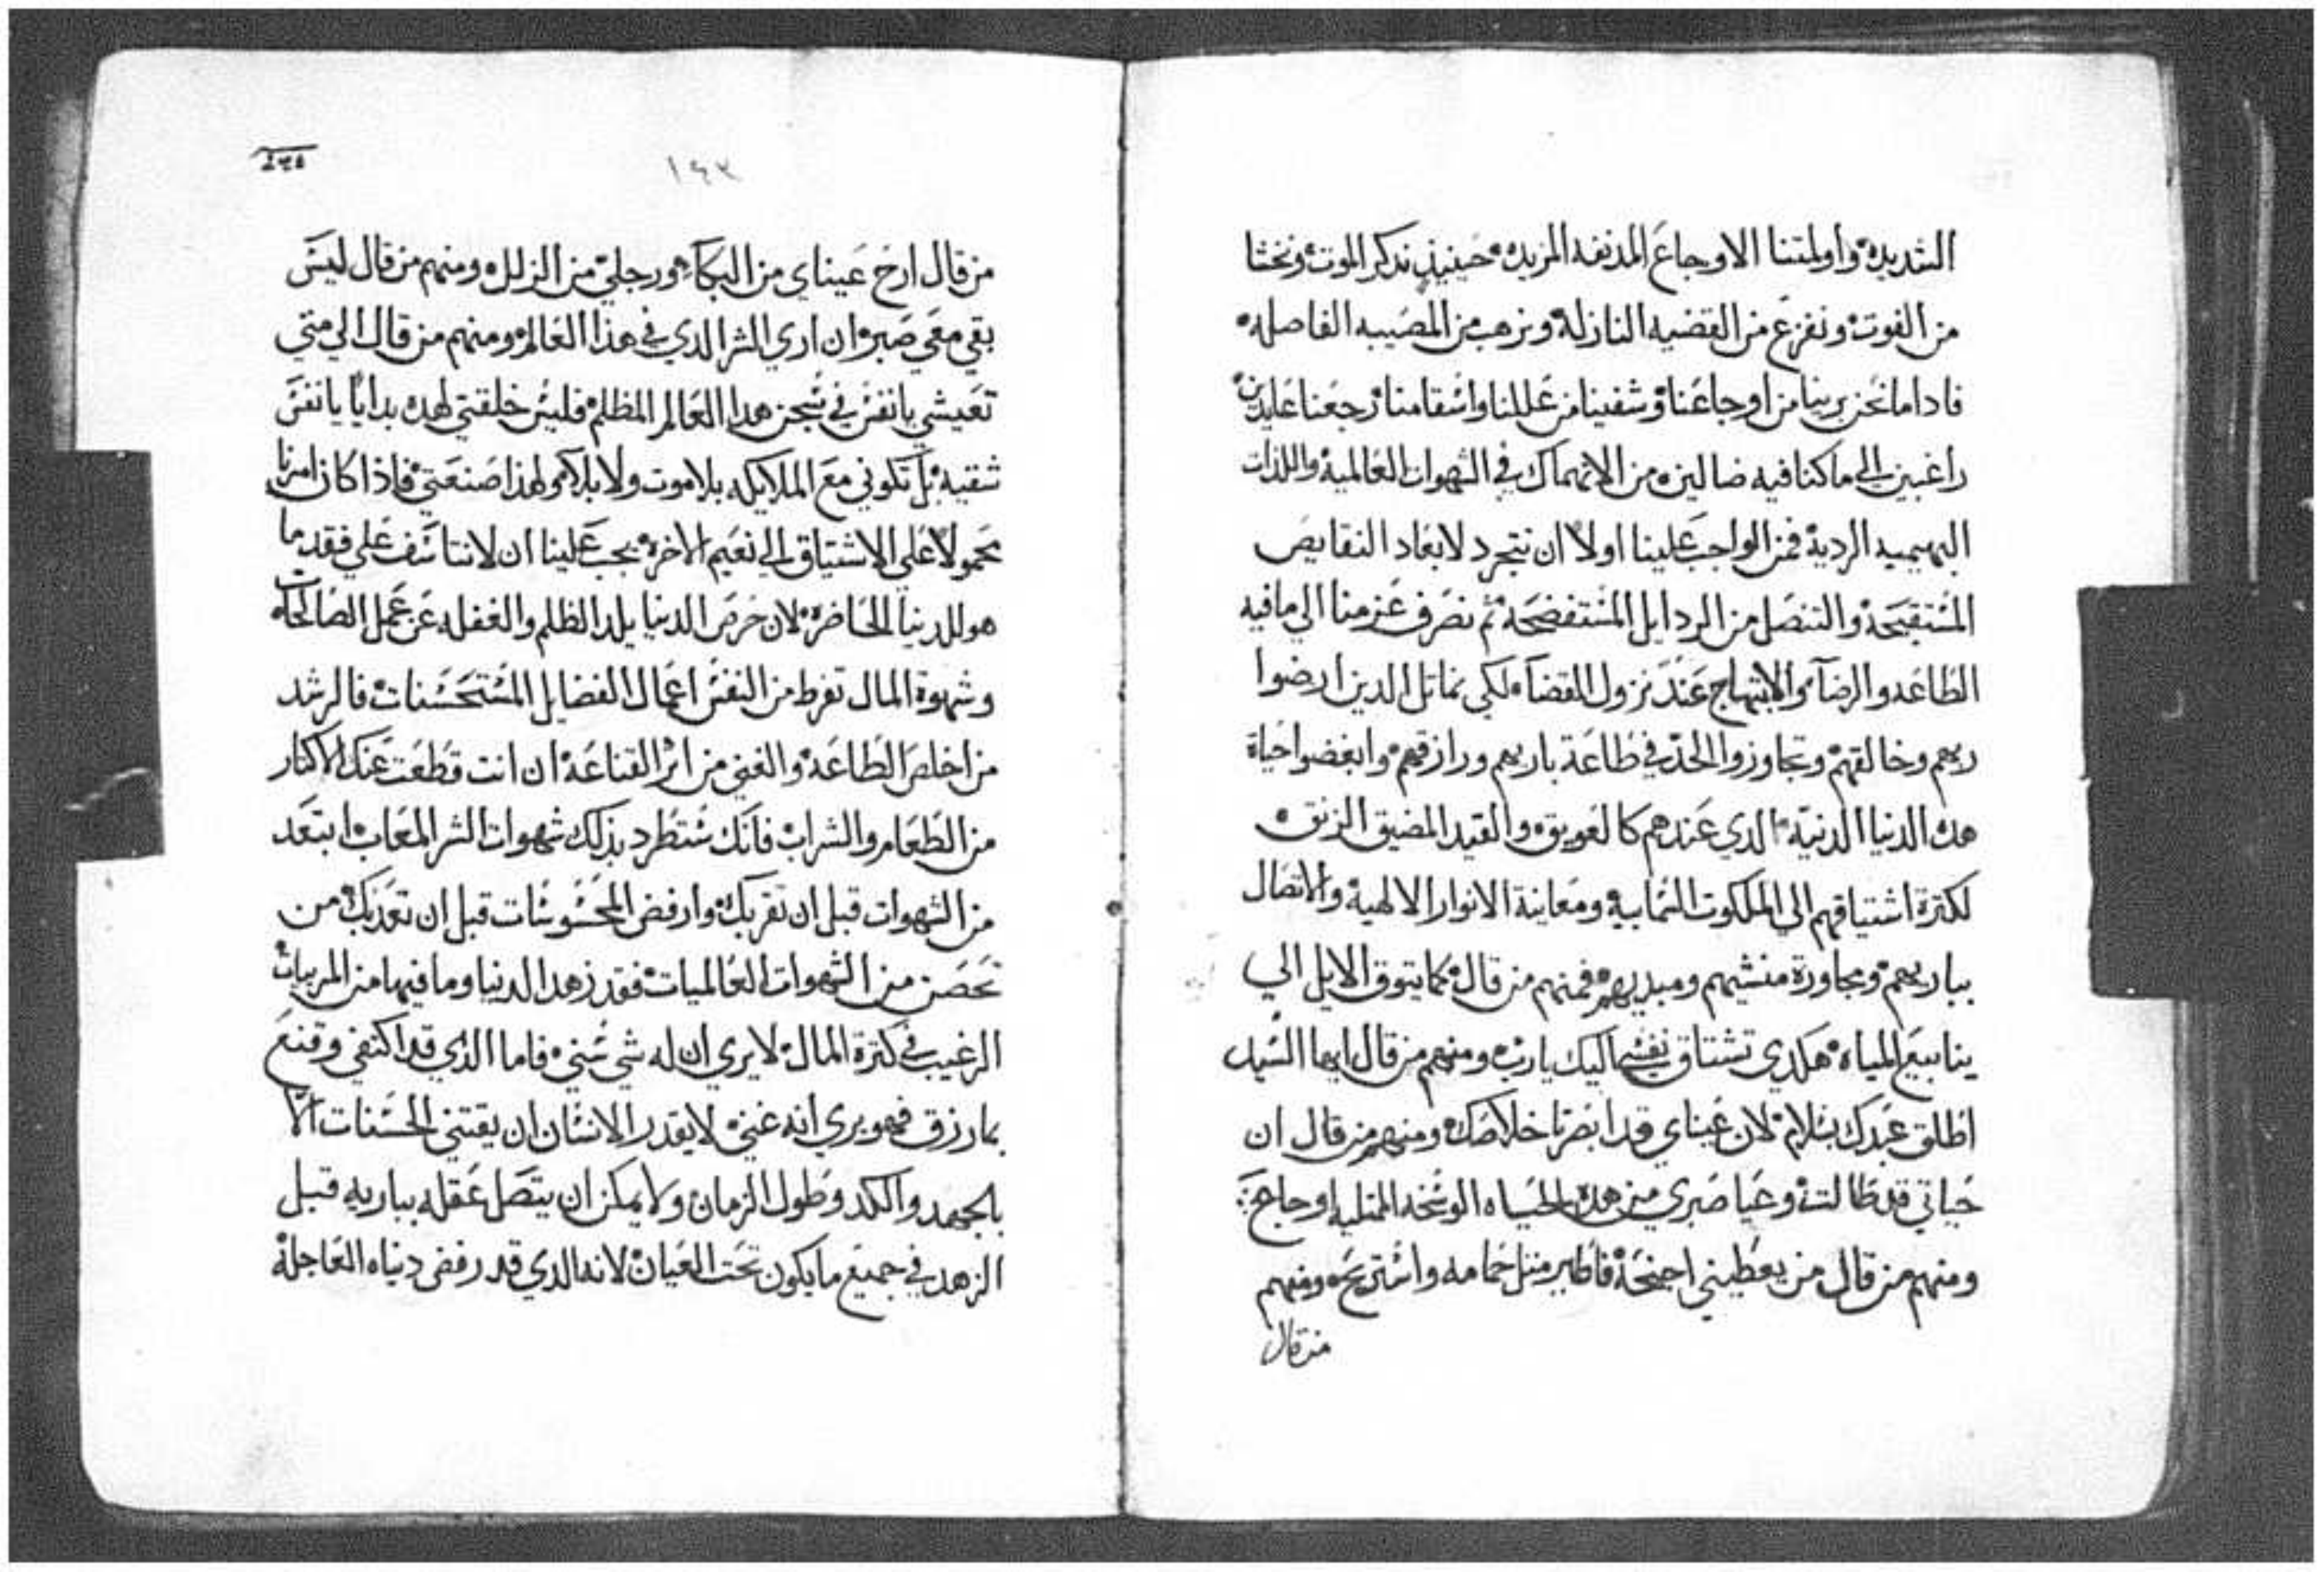 الشديده واولمتنا الاوجاع المدنفه المزيده حينيذٍ ندكر الموت ونخشا
من الفوت ونفزع من القضيه النازلة ونرهب من المصيبه الفاصله
فاداما نحن برينا من اوجاعنا وشفينا من عللنا واسقامنا رجعنا عايدين
راغبين الي ما كنا فيه ضالين من الانهماك في الشهوات العالمية واللذات
البهيميه الردية فمن الواجب علينا اولاً ان نتجرد لابعاد النقايص
المستقبحة والتنصل من الردايل المستفضحة ثم نصرف عزمنا الي ما فيه
الطاعه والرضآ والابتهاج عند نزول القضآ لكي نماتل الدين ارضوا
ربهم وخالقهم وتجاوزوا الحدّ في طاعة باريهم ورازقهم وابغضوا حياة
هده الدنيا الدنيّة الدي عندهم كالعويق والقيد المضيق الزنق
لكترة اشتياقهم الي الملكوت السماييه ومعاينة الانوار الالهية والاتصال
بباريهم ومجاورة منشيهم ومبديهم فمنهم من قال كما يتوق الايل الي
ينابيع المياه هكدي تشتاق نفسي اليك يارب ومنهم من قال ايها السيد
اطلق عبدك بسلام لان عيناي قد ابصرتا خلاصك ومنهم من قال ان
حياتي قد طالت وعيا صبري من هده الحياه الوسخه الممتليه اوجاع
ومنهم من قال من يعطيني اجنحة فاطير متل حمامه واستريح ومنهم
من قال
١٤٣
من قال ارح عيناي من البكآء ورجلي من الزلل ومنهم من قال ليس
بقي معي صبر ان اري الشر الدي في هذا العالم ومنهم من قال الي متي
تعيشي يانفس في سجن هدا العالم المظلم فليس خلقتي لهده بدايا يانفس
شقيه بل تكوني مع الملايكه بلا موت ولا بلا كمو لهذا صنعتي فاذا كان امرنا
محمولاً علي الاشتياق الي نعيم الاخره يجب علينا ان لا نتاسف علي فقد ما
هو للدنيا الحاضرة لان حرص الدنيا يلد الظلم والغفله عن عمل الصالحات
وشهوة المال تفرط من النفس اعمال الفضايل المستحسنات فالرشد
من اخلص الطاعة والغني من اثر القناعة ان انت قطعت عنك الاكتار
من الطعام والشراب فانك ستطرد بذلك شهوات الشر المعاب ابتعد
من الشهوات قبل ان تقربك وارفض المحسوسات قبل ان تعذبك من
تحصن من الشهوات العالميات فقد زهد الدنيا وما فيها من المربيات
الرغيب في كترة المال لا يري ان له شي سني فاما الذي قد اكتفي وقنع
بما رزق فهو يري انه غني لا يقدر الانسان ان يقتني الحسنات الاّ
بالجهد والكد وطول الزمان ولا يمكن ان يتصل عقله بباريه قبل
الزهد في جميع ما يكون تحت العيان لانه الدي قد رفض دنياه العاجلة